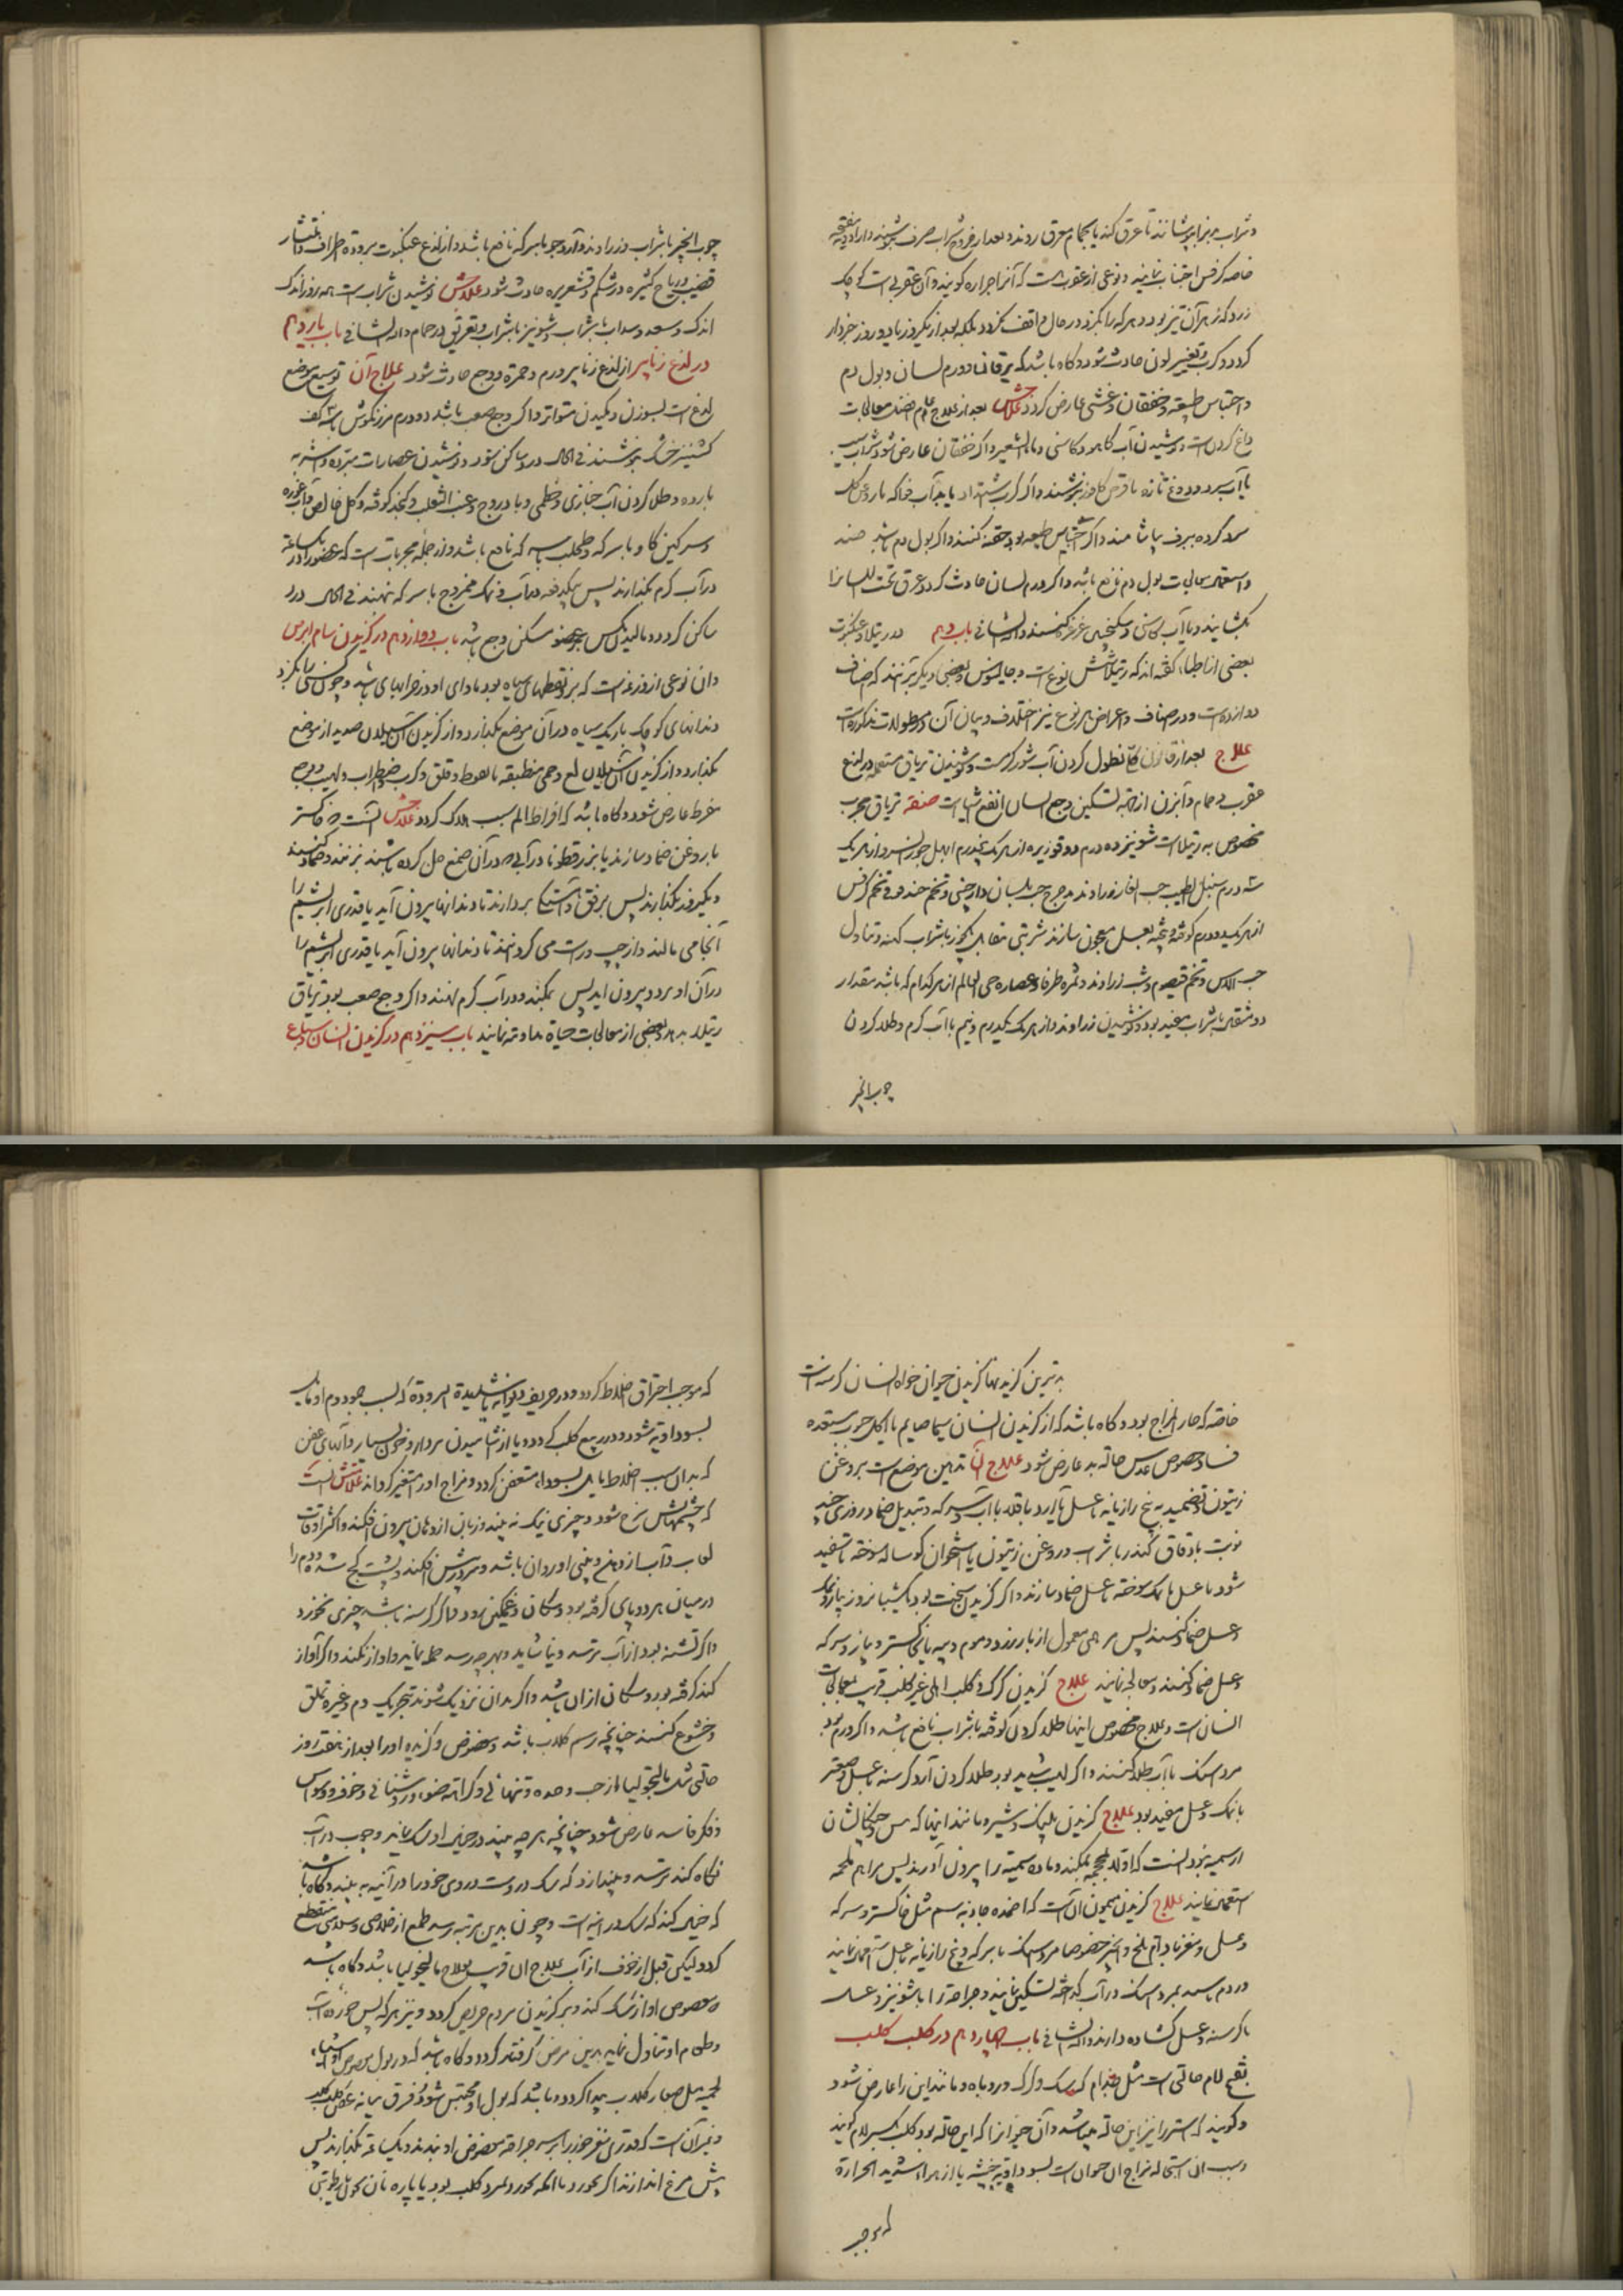 و شراب بپوشانند تا عرق کند یا بحمام معرق روند و بعد از خروج شراب صرف بنوشند و از ادویه مفتحه
خاصه کرفس اجتناب نمایند و نوعی از عقرب است که آنرا جراره کویند و آن عقربی است کوچک
زرد که زهر آن تیز بود و هر که را بکزد در حال واقف نکردد بلکه بعد از یکروز یا دو روز خبردار
کردد و کرب و تغییر لون حادث شود و کاه باشد که یرقان و ورم لسان و بول دم
و احتباس طبیعه و خفقان و غشی عارض کردد علاجش بعد از علاج عام فصد معالجات
داغ کردن است و نوشیدن آب کاهو و کاسنی و ماء الشعیر و اکر خفقان عارض شود شراب سیب
با آب سرد و دوغ تازه با قرص کافور بنوشند و اکر کرب اشتداد یابد آب فواکه با روغن کل
سرد کرده ببرف بیاشامند و اکر احتباس طبیعه بود حقنه کنند و اکر بول دم باشد فصد
و استعمال معالجات بول دم نافع باشد و اکر ورم لسان حادث کردد عرق تحت اللسان را
بکشایند و با آب کاسنی و سکنجبین غرغره کنند و الله الشافی باب دهم در رتیلا و عنکبوت
بعضی از اطبا کفته اند که رتیلا شش نوع است و جالینوس و بعضی دیکر بر آنند که اصناف
دوازده است و در اصناف و اعراض هر نوع نیز اختلاف و بیان آن در مطولات مذکور است
علاج بعد از قانون کلی نطول کردن آب شور کرم است و نوشیدن تریاق مستعمله در لدغ
عقرب و حمام و آبزن از جهة تسکین وجع ایشان انفع اشیاست صفة تریاق مجرب
مخصوص به رتیلا است شونیز ده درم دوقو زیره از هر یک پنجدرم ابهل جوز السرو از هر یک
سه درم سنبل الطیب حب الغار زراوند مدحرج حب بلسان دارچینی و تخم حندقوقی و تخم کرفس
از هر یک دو درم کوفته و بیخته بعسل معجون سازند شربتی مقابل یکجوز با شراب کهنه و تناول
حب الآس و تخم قیصوم و شب زراوند و ثمره طرفا و عصاره حی العالم از هر کدام که باشد بمقدار
دو مثقال با شراب مفید بود و نوشیدن زراوند از هر یک یکدرم و نیم با آب کرم و طلا کردن
چوب انجیر
چوب انجیر با شراب و زراوند و آرد جو با سرکه نافع باشد و از لدغ عنکبوت برودة اطراف و انتشار
قضیب و ریاح کثیره در شکم و قشعریره حادث شود علاجش نوشیدن شراب است همه روز اندک
اندک و سعد و سداب با شراب و شونیز با شراب و تعریق در حمام والله الشافی باب یازدهم
در لدغ زنابیر از لدغ زنابیر ورم و حمرة و وجع حادث شود علاج آن توسیع موضع
لدغ است بسوزن و مکیدن متواتر و اکر وجع صعب باشد دو درم مرزنکوش با سه کف
کشنیز خشک بنوشند فی الحال درد ساکن شود و نوشیدن عصارات مبرده و اشربه
بارده و طلا کردن آب خبازی و خطمی و بادروج و عنب الثعلب و کنجد کوفته و کل خالص و آب غوره
و سرکین کاو با سرکه و طحلب با سرکه نافع باشد و از جمله مجربات است که عضو را در ساعة
در آب کرم بکذارند پس یکدفعه در آب و نمک ممزوج با سرکه نهند فی الحال درد
ساکن کردد و مالیدن مکس بر عضو مسکن وجع باشد باب دوازدهم در کزیدن سام ابرص
و آن نوعی از وزغه است که بر او نقطهای سیاه بود ماوای او در خرابهای باشد و چون کسی را بکزد
دندانهای کوچک باریک سیاه در آن موضع بکذارد و از کزیدن آن سیلان صدید از موضع
بکذارد و از کزیدن آن سیلان لع و حمی مطبقه با هبوط و قلق و کرب و اضطراب و لهیب و وجع
مفرط عارض شود و کاه باشد که افراط الم سبب هلاک کردد علاجش آنست که خاکستر
با روغن ضماد سازند یا بزر قطونا در آبی که در آن صمغ حل کرده باشند بزنند و ضماد کنند
و یکروز بکذارند پس برفق و آهستکی بردارند تا دندانها بیرون آید یا قدری ابریشم را
آنجا می مالند و از چپ و راست می کردانند تا دندانها بیرون آید یا قدری ابریشم را
در آن او برد و بیرون آید پس بمکند و در آب کرم نهند و اکر وجع صعب بود تریاق
رتیلا بدهند و بعضی از معالجات حیاة و هامه نمایند باب سیزدهم در کزیدن انسان و سباع
بدترین کزیدنها کزیدن حیوان خواه انسان کرسنه است
خاصه که حار المزاج بود و کاه باشد که از کزیدن انسان سیما صایم یا آکل حبوب مستعده
فساد خصوص عدس حاله بد عارض شود علاج آن تدهین موضع است بروغن
زیتون و تضمید به بیخ رازیانه با عسل یا آرد باقلا با آب و سرکه و تبدیل ضماد روزی چند
نوبت یا دقاق کندر با شراب و روغن زیتون یا استخوان کوساله سوخته تا سفید
شود با عسل یا نمک سوخته با عسل ضماد سازند و اکر کزیدن سخت بود یک شبانروز پیاز و نمک
و عسل ضماد کنند پس مرهمی معمول از بارزد و موم و پیه یا خاکستر و پیاز و سرکه
و عسل ضماد کنند و معالجه نمایند علاج کزیدن کرک و کلب اهلی غیر کلب قریب بمعالجات
انسان است و علاج مخصوص اینها طلا کردن کوفته با شراب نافع باشد و اکر ورم بود
مرداسنک با آب طلا کنند و اکر لهیب شدید بود طلا کردن آرد کرسنه با عسل و صعتر
با نمک و عسل مفید بود علاج کزیدن پلنک و شیر و مانند اینها که پس و چنکال ایشان
از سمیه نبود آنست که اولا بمحجمه بمکند و ماده سمیه را بیرون آورند پس مراهم ملحمه
استعمال نمایند علاج کزیدن میمون آن است که اضمده جاذبه سم مثل خاکستر و سرکه
و عسل و مغز بادام تلخ و انجیر خصوصا مرداسنک با سرکه و بیخ رازیانه با عسل استعمال نمایند
و ورم باسه بمرداسنک در آب کداخته تسکین نمایند و جراحة را با شونیز و عسل
با کرسنه و عسل کشاده دارند والله الشافی باب چهاردهم در کلب کلب
بفتح لام حالتی است مثل جذام که سک و کرک و روباه و مانند این را عارض شود
و کویند که استر را نیز این حاله پیدا شد و آن حیوانرا که این حاله بود کلب بکسر لام کویند
و سبب آن استحاله مزاج آن حیوان است بسوداویه خبیثه یا از هواء شدید الحرارة
که موجب
که موجب احتراق اخلاط کردد و در خریف هوایی با شدیدة البرودة که سبب جمود دم او مایل
بسوداویه شود و در ربیع کلب کردد و یا از آشامیدن مردار و خون بسیار و آبهای عفن
که بدان سبب اخلاط مایل بسوداء متعفن کردد و مزاج او را متغیر کرداند علامتش آنست
که چشمهایش سرخ شود و چیزی نیک نه بیند و زبان از دهان بیرون افکند و اکثر اوقات
لعاب و آب از دهن و بینی او روان باشد و سر در پیش افکند و پشت کج شده و دم را
در میان هر دو پای کرفته بود و سکان و غمکین رود و اکر کرسنه باشد چیزی نخورد
و اکر تشنه بود از آب ترسد و نیاشامد و بهر چه رسد حمله نماید و آواز نکند و اکر آواز
کند کرفته بود و سکان از آن باشد و اکر بدان نزدیک شوند تحریک دم و غیره تملق
و خشوع کنند چنانچه رسم کلاب باشد و معضوض و کزیده او را بعد از هفت روز
حالتی شبیه مالیخولیا از حب وحده و تنهائی و کراهة ضوء و روشنائی و خوف و وسواس
و فکر فاسد عارض شود چنانچه هر چه بیند در خیال او سک نماید و چون در آب
نکاه کند ترسد و پندارد که سک در اوست و روی خود را در آئینه به بیند و کاه باشد
که خیال کند که سک در آینه است و چون بدین مرتبه رسد طمع از خلاصی و سلامتی منقطع
کردد لیکن قبل از خوف از آب علاج آن قریب بعلاج مالیخولیا باشد و کاه باشد
معضوض آواز سک کند و بر کزیدن مردم حریص کردد و نیز هر که پس خورده آب
و طعام او تناول نماید بدین مرض کرفتار کردد و کاه باشد که در بول معضوض اشیاء
لحمیه مثل صغار کلاب پیدا کردد و باشد که بول او محتبس شود و فرق میان عض کلب کلب
و غیر آن است که قدری مغز جوز را بر سر جراحة معضوض او بندند و یکساعة بکذارند پس
پیش مرغ اندازند اکر نخورد یا آنکه بخورد و بمرد کلب بود یا پاره نان بخون یا رطوبتی